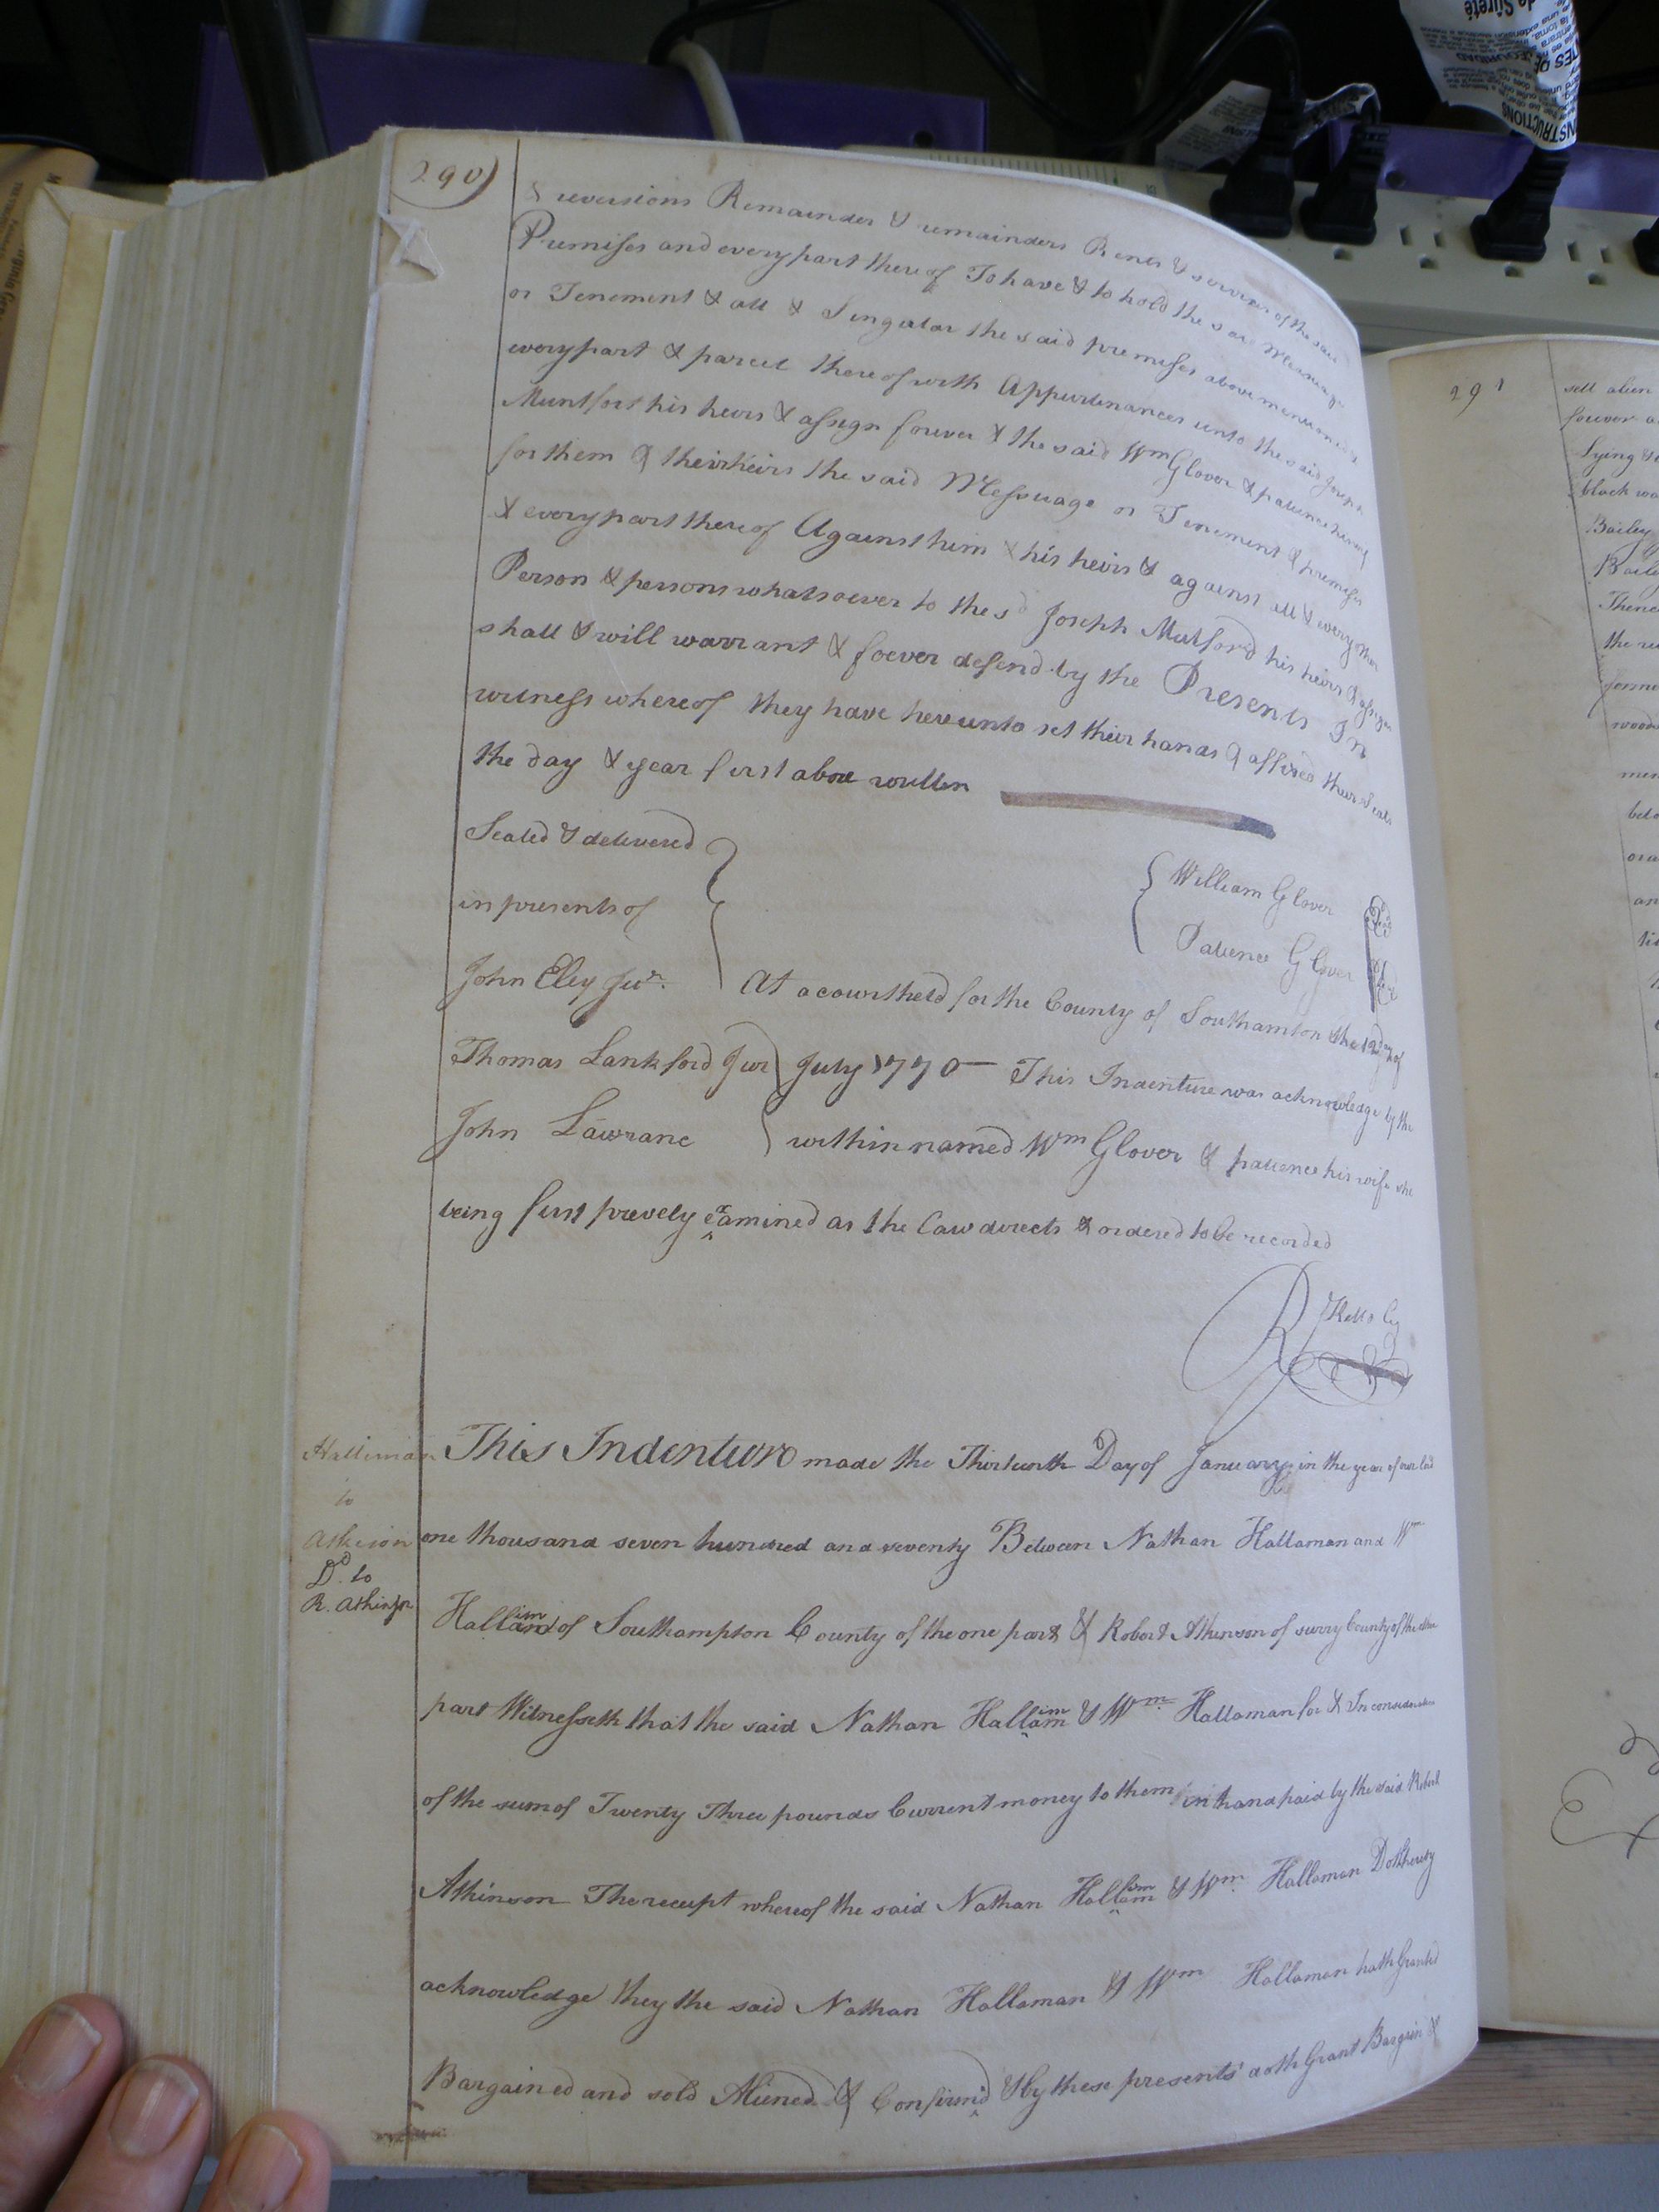 290)
& reversions Remainder & remainders Rents & services of the said
Premises and every part there of To have & to hold the said Messuage
or Tenement & all & Singular the said premises above mentioned &
every part & parcel there of with Appurtenances unto the said Joseph
Muntfort his heirs & assign forever & the said Wm Glover & patience his wife
for them & their heirs the said Messuage or Tenement & premises
& every part there of Against him & his heirs & against all & every other
Person & persons whatsoever to the sd Joseph Mutford his heirs & assigns
shall & will warrant & foever defend by the Presents In
witness whereof they have hereunto set their hands & affixed their Seals
the day & year first above written
Sealed & delivered
in presents of
William Glover
Patience Glover
John Eley Jur. At a court held for the County of Southamton the 12 day of
Thomas Lankford Jur July 1770 This Indenture was acknowledge by the
John Lawranc within named Wm Glover & patience his wife she
being first prevely examined as the Law directs & ordered to be recorded
R Kello
Halliman
to
Atkeison
Do. to
R. Atkinson
This Indenture made the Thirteenth Day of January in the year of our Lord
one thousand seven hundred and seventy Between Nathan Hallaman and Wm
Halliman of Southampton County of the one part & Robert Atkinson of surry County of the other
part Witnesseth that the said Nathan Hallam & Wm Hallaman for & In consideration
of the sum of Twenty Three pounds Current money to them in hand paid by the said Robert
Atkinson The recept whereof the said Nathan Hallam & Wm Hallaman Doth hereby
acknowledge they the said Nathan Hallaman & Wm Hallaman hath Granted
Bargained and sold Aliened & Confirmd & by these presents doth Grant Bargain &
291
sell alien
forever
Lying &
black
Bailey
Thence
the
INSTRUCTIONS
de Sûreté